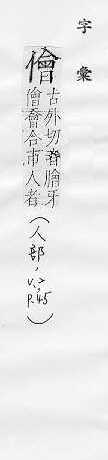 字彙
儈
古外切音膾牙
儈會合市人者
(人部, V.>, P.45)